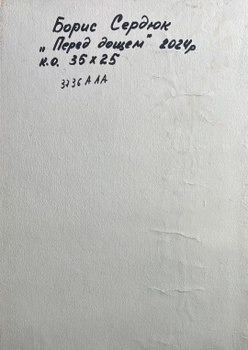 Борис Сердюк
„Перед дощем" 2024р
к.о. 35х25
3236 ААА